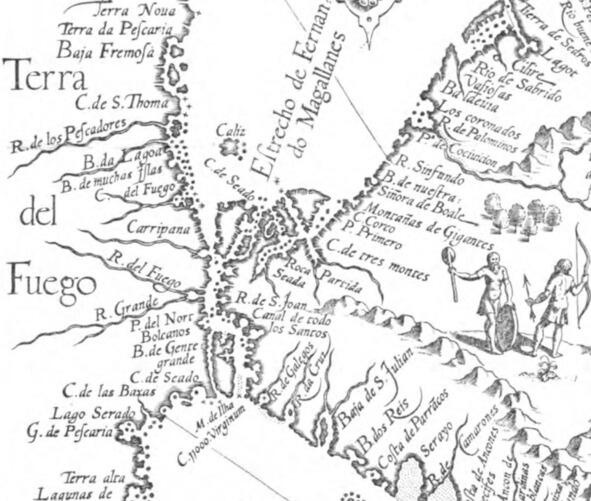 Terra Nova
Terra da Peſcaria
Baja Fremoſà
Terra
C. de S. Thoma
R. de los Peſcadores
B. da Lagoa
B. de muchas Iſlas
C. del Fuego
del
Carripana
R. del Fuego
Fuego
R. Grande
P. del Nort
Bolcanos
B. de Gente
grande
C. de Seado
C. de las Baxas
Lago Serado
G. de Peſcaria
Terra alta
Lagunas de
Caliz
C. de Seado
Eſtrecho de Fernan
do Magallanes
Roca
Seada
Partida
R. de S. Joan
Canal de todo
los Santos
M. de Ilha
C. 11000. Virginum
Terra de Sedros
Rio buene
Lagor
Cibre
Rio de Sabrido
Vaſioſas
Baldeuia
Los coronados
R. de Palominos
Pº. de Cocincion
R. Sinfundo
B. de nueſtra:
Sinora de Boale
Montañas de Gigantes
C. Corco
P. Primero
C. de tres montes
R. de Galegos
R. da Cruz
Baja de S. Julian
B. dos Reis
Coſta de Parracos
Serayo
R. de Camarones